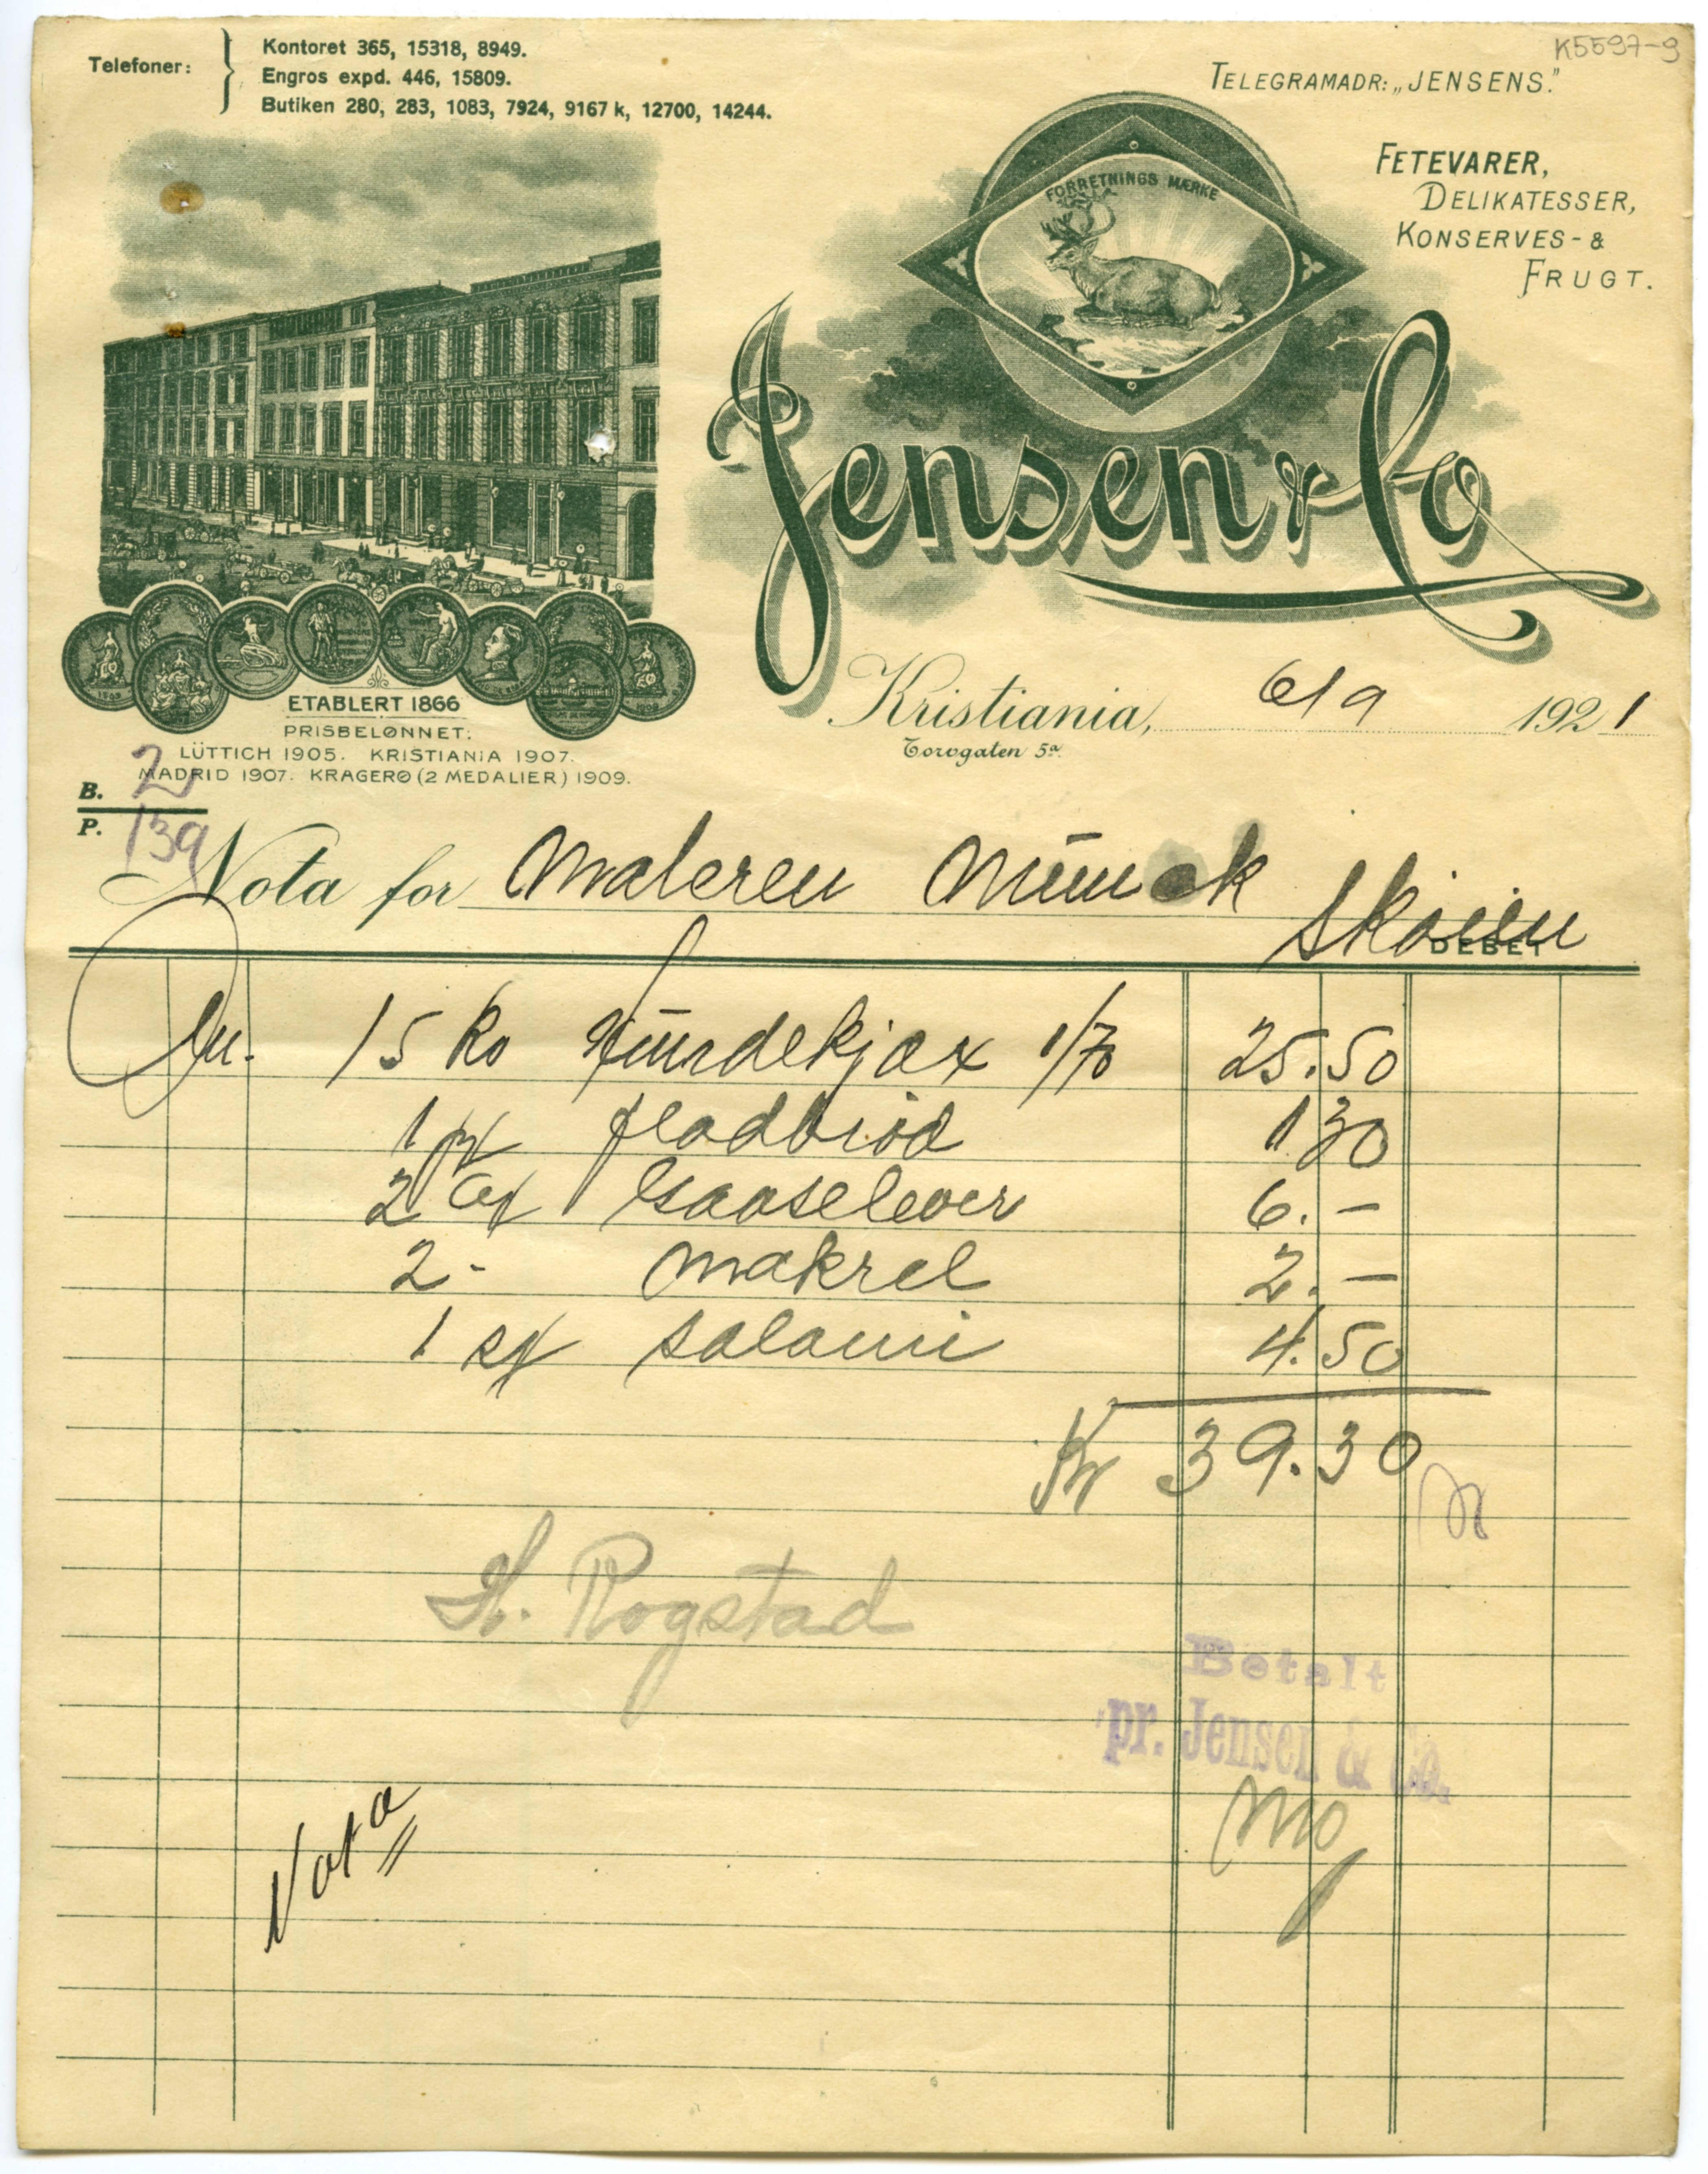 K5597-9
Telefoner:
Kontoret 365, 15318, 8949.
Engros expd. 446, 15809.
Butiken 280, 283, 1083, 7924, 9167 k, 12700, 14244.
TELEGRAMADR: „JENSENS."
FETEVARER,
DELIKATESSER,
KONSERVES- &
FRUGT.
FORRETNINGS MÆRKE
Jensen & Co
ETABLERT 1866
PRISBELØNNET:
LÜTTICH 1905. KRISTIANIA 1907.
MADRID 1907. KRAGERØ (2 MEDALIER) 1909.
Kristiania, 6/9 1921
Torvgaten 5a.
B. 2
P. 139
Nota for Maleren Munck Skøien
DEBET
15 ko Hundekjæx 1/70 25.50
1 pk fladbrød 1 30
2 Gaaselever 6. —
2 - Makrel 2. —
1 st salami 4.50
Kr 39.30
H. Rogstad
Betalt
pr. Jensen & Co.
Nota